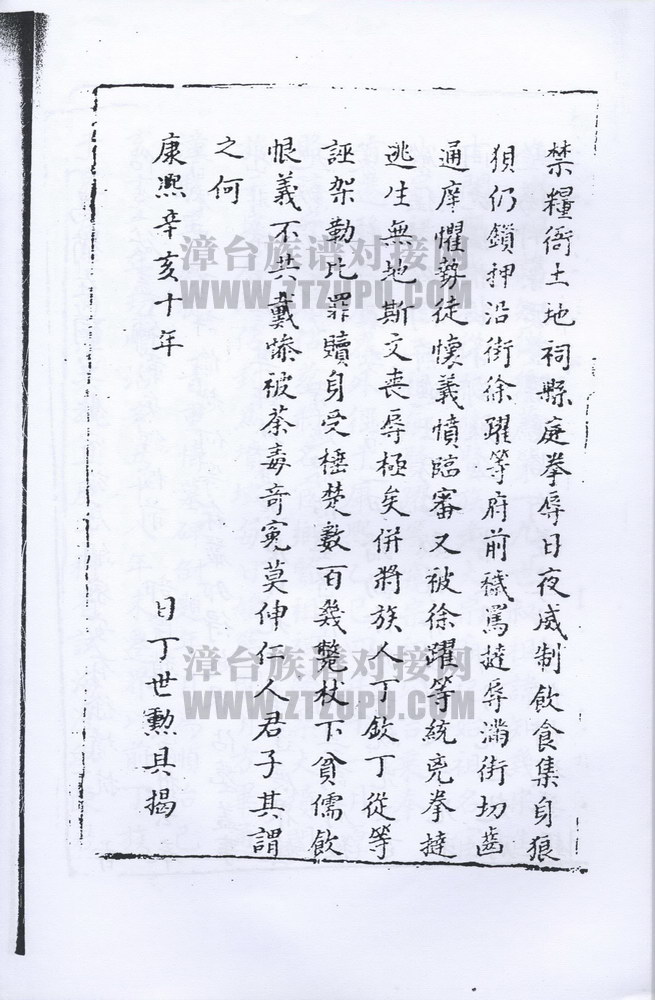 禁糧衙土地祠縣庭拳辱日夜威制飲食集自狼
狽仍鎖押沿街徐躍等府前穢罵撻辱滿街切齒
通庠懼勢徒懷義憤臨審又被徐躍等統兇拳撻
逃生無地斯文喪辱極矣併將族人丁欽丁從等
誣架勒比罪贖身受棰楚數百幾斃杖下貧儒飲
恨義不共戴慘被荼毒奇冤莫伸仁人君子其謂
之何
康熙辛亥十年
日丁世勲具揭
漳台族谱对接网
WWW.ZTZUPU.COM
漳台族谱对接网
WWW.ZTZUPU.COM